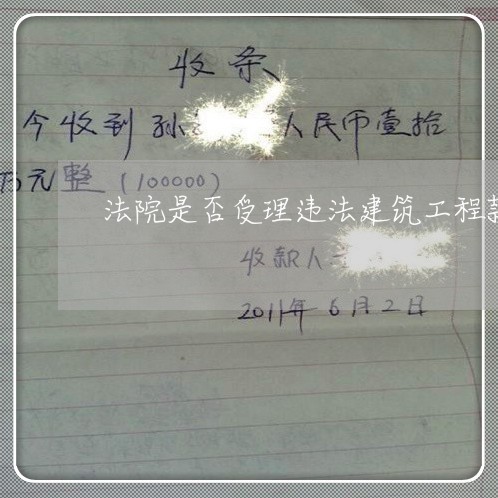 收条
今收到孙 人民币壹拾
万元整(100000)
法院是否受理违法建筑工程款
收款人
2011年6月2日